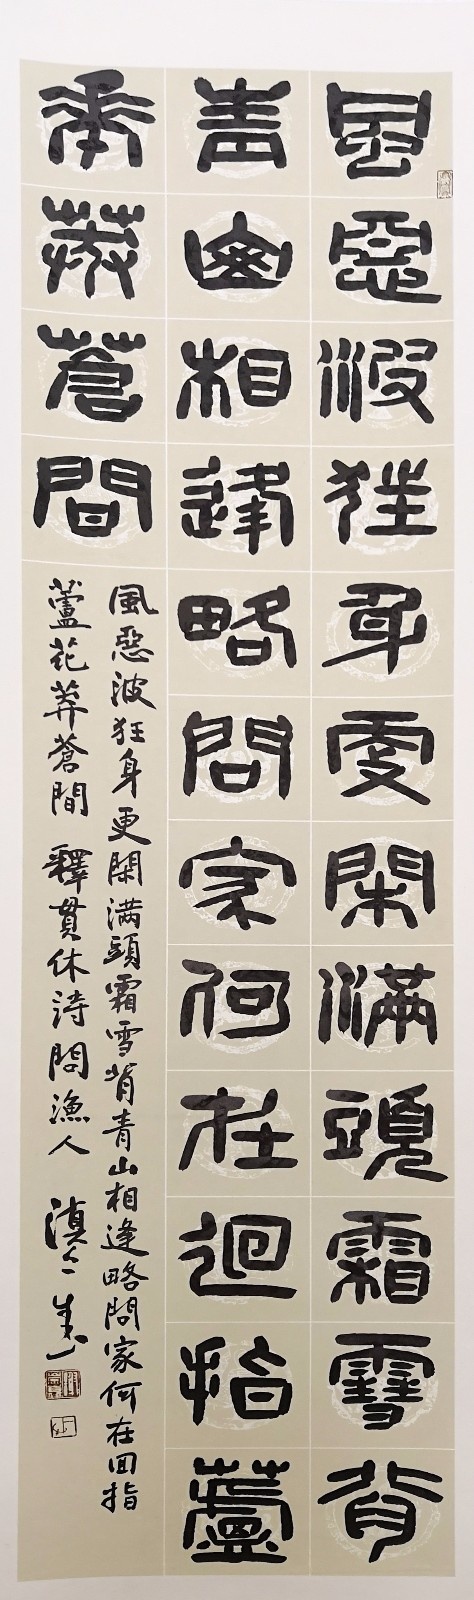 風惡波狂身更閑滿頭霜雪背
青山相逢略問家何在迴指蘆
花莽蒼間
風惡波狂身更閑满頭霜雪背青山相逢略問家何在回指
蘆花莽蒼間 釋貫休詩問漁人